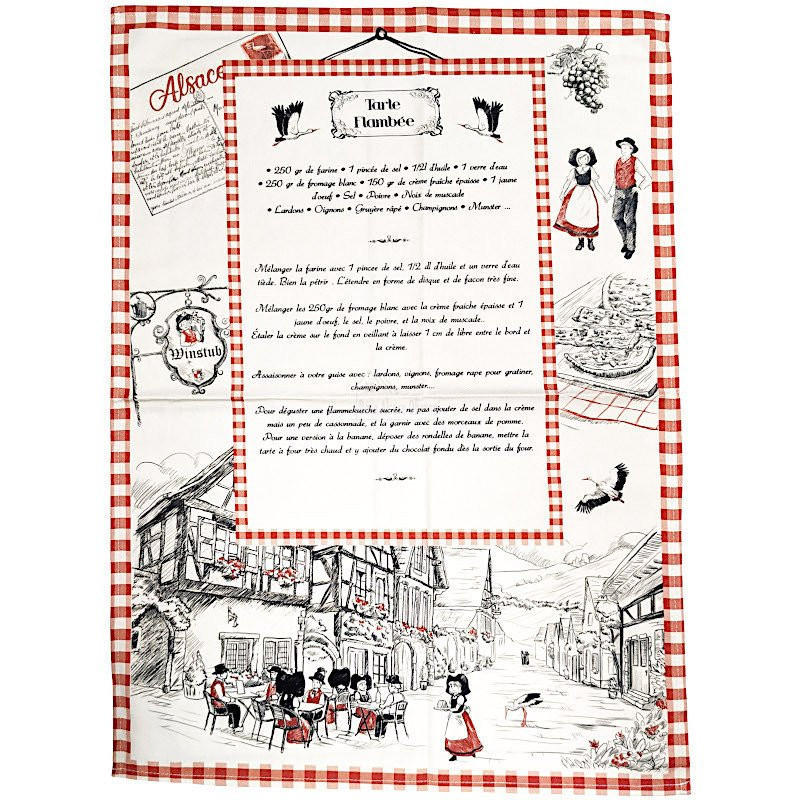 Alsace
Tarte
Flambée
• 250 gr de farine • 1 pincée de sel • 1/2l d'huile • 1 verre d'eau
• 250 gr de fromage blanc • 150 gr de crème fraîche épaisse • 1 jaune
d'oeuf • Sel • Poivre • Noix de muscade
• Lardons • Oignons • Gruyère râpé • Champignons • Munster ...
Mélanger la farine avec 1 pincee de sel, 1/2 dl d'huile et un verre d'eau
tiède. Bien la pétrir . L'étendre en forme de disque et de facon très fine.
Mélanger les 250gr de fromage blanc avec la crème fraîche épaisse et 1
jaune d'oeuf, le sel, le poivre, et la noix de muscade..
Étaler la crème sur le fond en veillant à laisser 1 cm de libre entre le bord et
la crème.
Assaisonner à votre guise avec : lardons, oignons, fromage rape pour gratiner,
champignons, munster....
Pour déguster une flammekueche sucrée, ne pas ajouter de sel dans la crème
mais un peu de cassonnade, et la garnir avec des morceaux de pomme.
Pour une version à la banane, déposer des rondelles de banane, mettre la
tarte à four très chaud et y ajouter du chocolat fondu dès la sortie du four.
Winstub